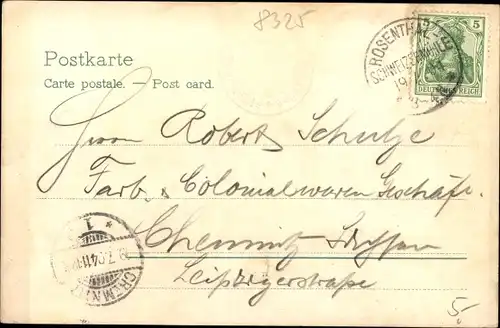 8325
Postkarte
Carte postale. — Post card.
5
DEUTSCHES REICH
ROSENTHAL
SCHWEIZERMÜHLE
19
Herrn Robert Schulze
Farb. & Colonialwaren Geschäft.
Chemnitz
Leipzigerstraße
1
CHEMNITZ
5.